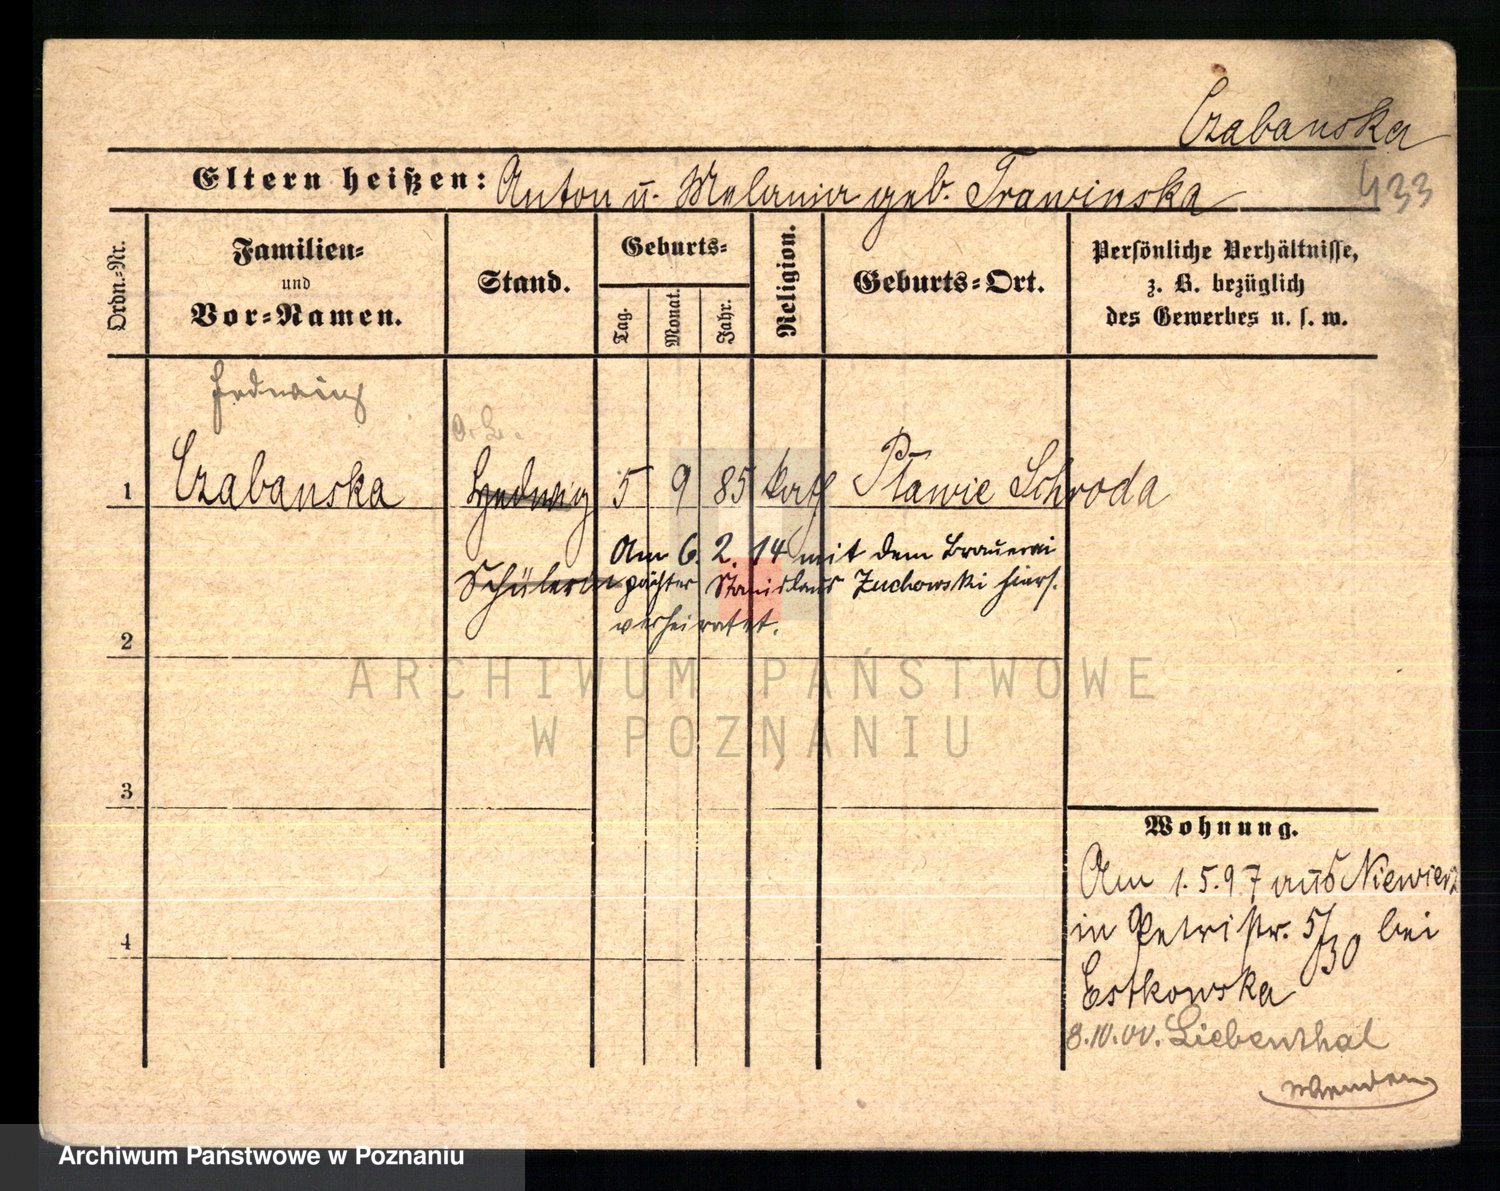 Czabanska
Eltern heißen: Anton u. Melania geb. Trawinska
433
Ordn.-Nr.
Familien-
und
Vor-Namen.
Stand.
Geburts-
Tag.
Monat.
Jahr.
Religion.
Geburts-Ort.
Persönliche Verhältnisse,
z. B. bezüglich
des Gewerbes u. s. w.
Hedwig
1 Czabanska Hedwig 5 9 85 kath Pławie Schroda
Am 6. 2. 14 mit dem Brauerei
Schülerin pächter Stanislaus Zuchowski hiers.
verheiratet.
2
ARCHIWUM PAŃSTWOWE
W POZNANIU
3
Wohnung.
Am 1.5.97 aus Niewierz
in Petristr. 5/30 bei
4
Estkowska
8.10.00. Liebenthal
Archiwum Państwowe w Poznaniu